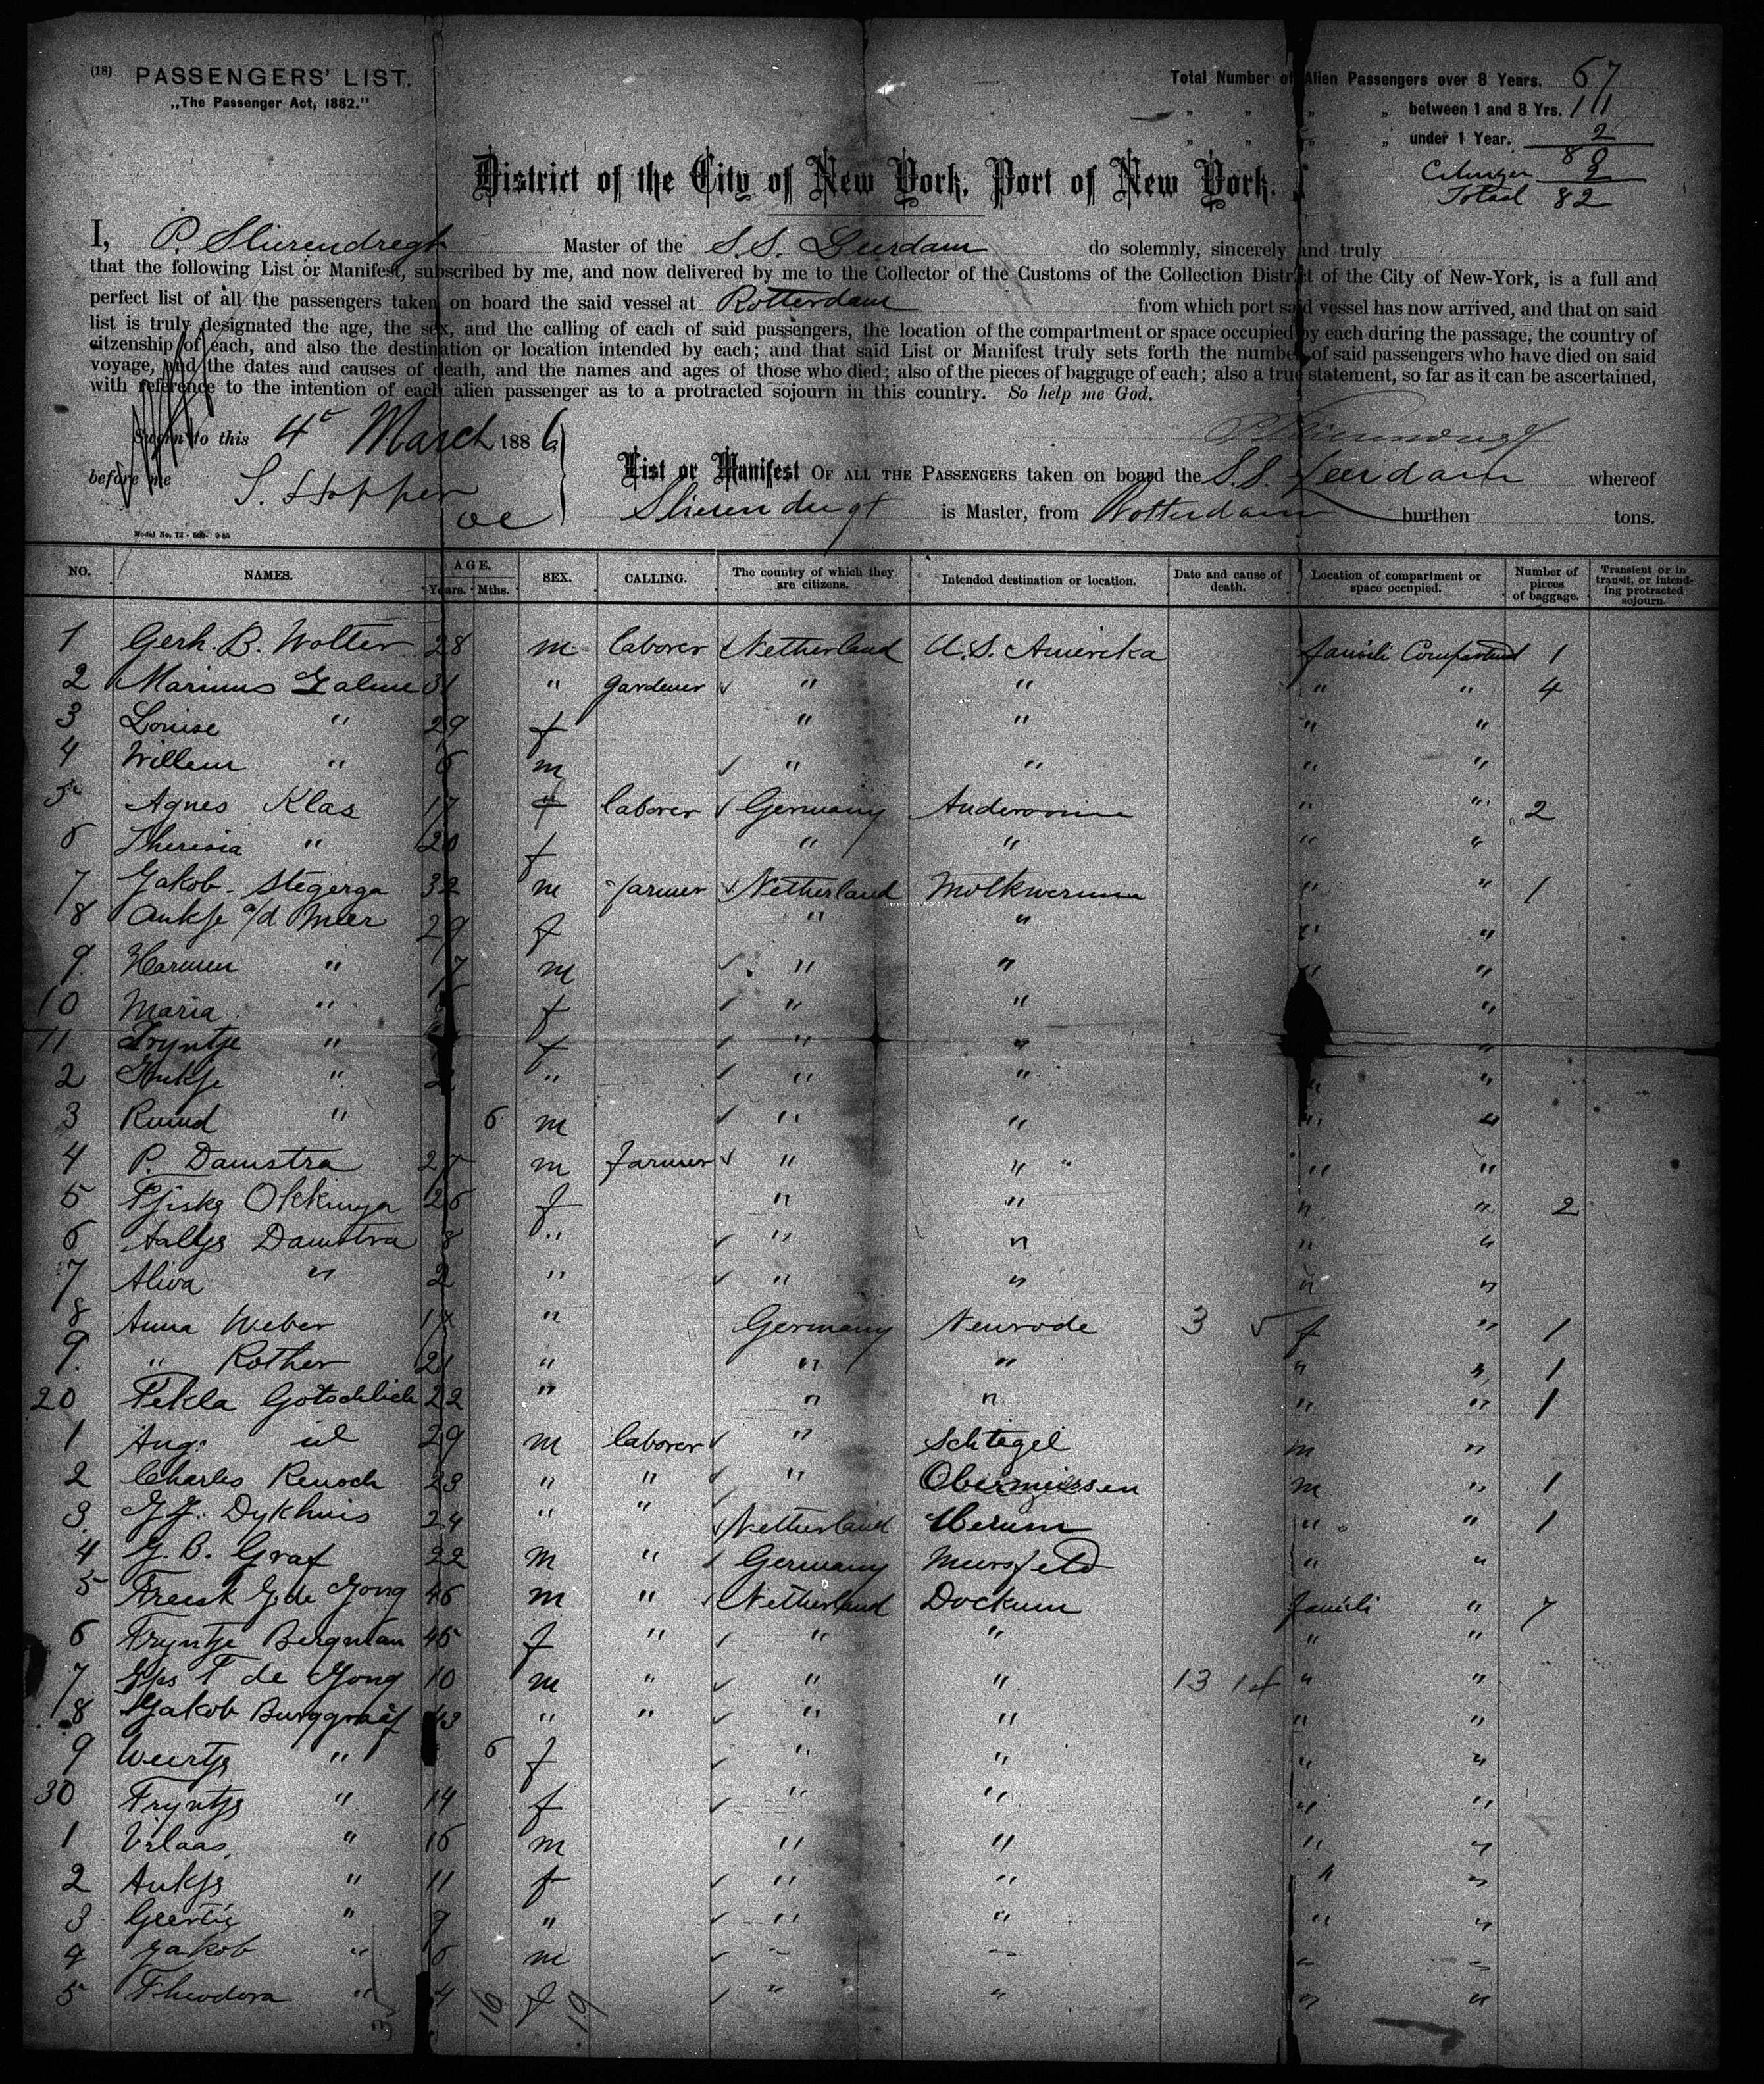 (18) PASSENGERS' LIST.
„The Passenger Act, 1882."
Total Number of Alien Passengers over 8 Years. 67
" " " " between 1 and 8 Yrs. 11
" " " " under 1 Year. 2
80
2
Totaal 82
District of the City of New York, Port of New York.
I, P. Stierendregt Master of the S.S. Leerdam do solemnly, sincerely and truly
that the following List or Manifest, subscribed by me, and now delivered by me to the Collector of the Customs of the Collection District of the City of New-York, is a full and
perfect list of all the passengers taken on board the said vessel at Rotterdam from which port said vessel has now arrived, and that on said
list is truly designated the age, the sex, and the calling of each of said passengers, the location of the compartment or space occupied by each during the passage, the country of
citzenship of each, and also the destination or location intended by each; and that said List or Manifest truly sets forth the number of said passengers who have died on said
voyage, and the dates and causes of death, and the names and ages of those who died; also of the pieces of baggage of each; also a true statement, so far as it can be ascertained,
with reference to the intention of each alien passenger as to a protracted sojourn in this country. So help me God.
Sworn to this 4 March 1886
before me S. Hopper
List or Manifest OF ALL THE PASSENGERS taken on board the S.S. Leerdam whereof
Stierendregt is Master, from Rotterdam burthen tons.
Model No. 72 - 500. 9-85
NO. NAMES. AGE. Years. Mths. SEX. CALLING. The country of which they are citizens. Intended destination or location. Date and cause of death. Location of compartment or space occupied. Number of pieces of baggage. Transient or in transit, or intending protracted sojourn.
1 Gerh. B. Wolter 28 m laborer Netherland U.S. Amereka famili Compartment 1
2 Marinus 31 " gardener " " " " 4
3 Louise " 29 f " " " "
4 Willem " 6 m " " " "
5 Agnes Klas 17 f laborer Germany " " 2
6 Theresia " 20 f " " " "
7 Jakob Stegerga 32 m farmer Netherland Molkwerum " " 1
8 Aukje v/d Meer 29 f " " " "
9 Harmen " 7 m " " " "
10 Maria " f " " "
11 Tryntje " f " " "
2 Aukje " 2 " " " " "
3 Ruurd " 6 m " " " "
4 P. Damstra 27 m farmer " " " "
5 Tjiske Okkinga 26 f " " " " 2
6 Aaltje Damstra 8 " " " " "
7 " 2 " " " " "
8 Anna Weber 17 " Germany Neurode 3 5 f " 1
9 " Rother 21 " " " " " 1
20 Tekla Gotschlich 22 " " " " " 1
1 Aug. 29 m laborer " Schlegel m "
2 Charles Renoch 23 " " " m " 1
3 Dykhuis 24 " " Netherland " " 1
4 G. B. Graf 22 m " Germany " "
5 Freerk de Jong 46 m " Netherland Dockum famili " 7
6 Tryntje Bergman 45 f " " " " "
7 T de Jong 10 m " " " 13 " "
8 Jakob Burggraaf 43 " " " " " "
9 Weertje " 6 f " " " "
30 Tryntje " 14 f " " " "
1 " 16 m " " " "
2 Aukje " 11 f " " " "
3 Geertje " 9 " " " " "
4 Jakob " 6 m " " " "
5 Theodora " 4 f " " " "
16 19